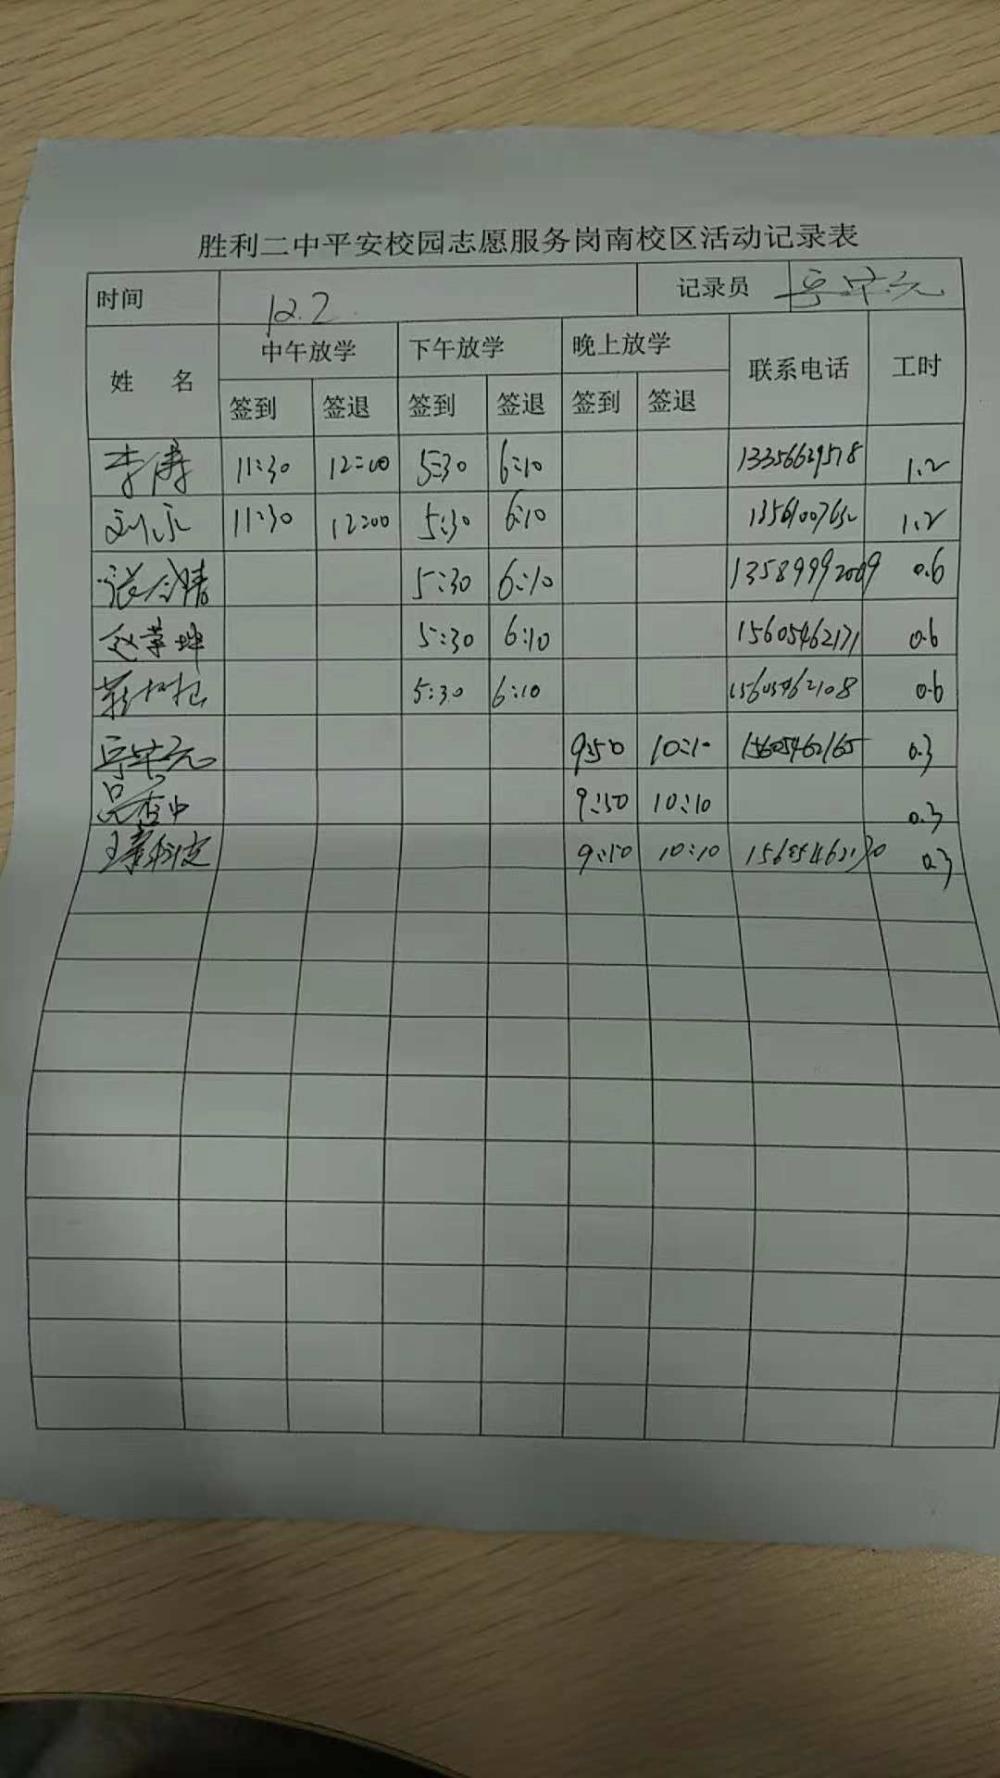 胜利二中平安校园志愿服务岗南校区活动记录表
时间 12.2 记录员
姓 名 中午放学 下午放学 晚上放学 联系电话 工时
签到 签退 签到 签退 签到 签退
李涛 11:30 12:00 5:30 6:10 13356629518 1.2
刘永 11:30 12:00 5:30 6:10 1.2
张 5:30 6:10 13589992009 0.6
赵 坤 5:30 6:10 15605462171 0.6
5:30 6:10 15605462108 0.6
9:50 10:10 15605462165 0.3
9:50 10:10 0.3
王 9:50 10:10 0.3